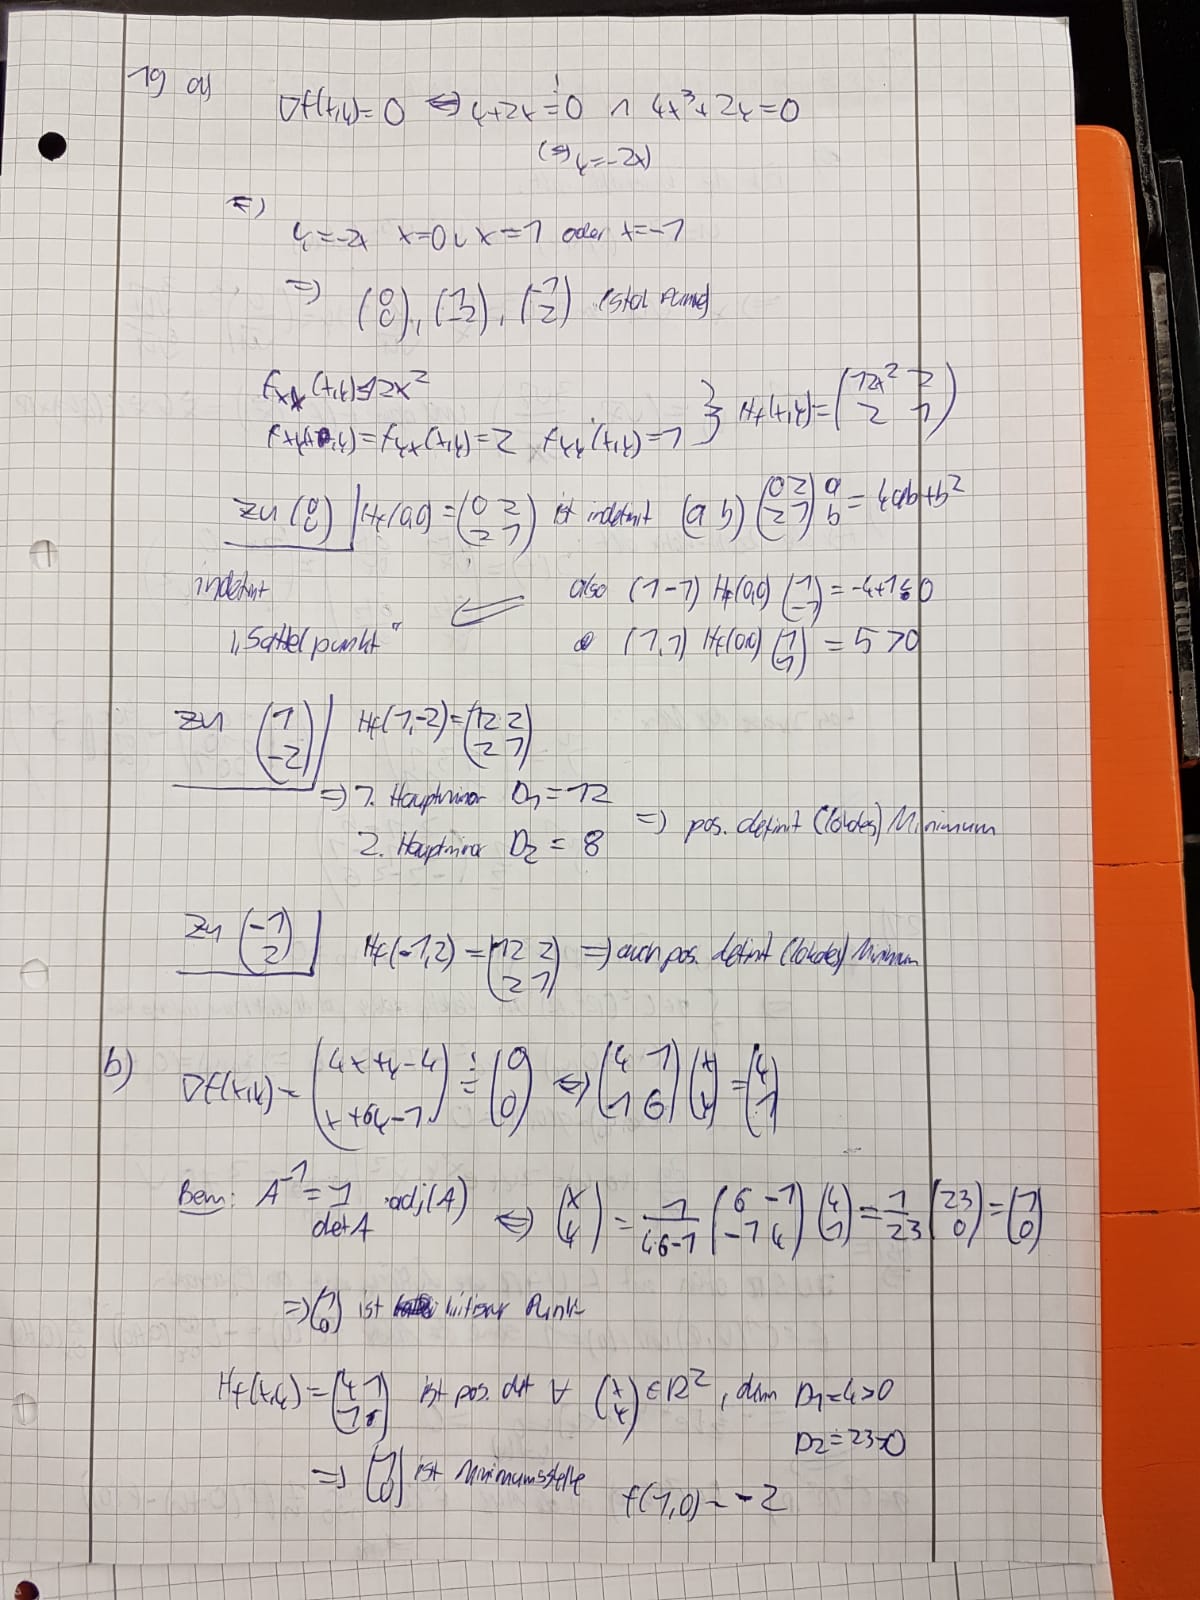 19 a)
∇f(x,y)=0 ⇔ y+2x=0 ∧ 4x³+2y=0
(⇔ y=-2x)
⇔
y=-2x x=0 ∨ x=1 oder x=-1
⇒ (0 0), (1 -2), (-1 2) (Stat. Punkte)
f_xx(x,y)=12x²
f_xy(x,y)=f_yx(x,y)=2 f_yy(x,y)=1 } Hf(x,y)=(12x² 2 / 2 1)
zu (0 0) Hf(0,0)=(0 2 / 2 1) ist indefinit (a b)(0 2 / 2 1)(a b)=4ab+b²
indefinit also (1 -1) Hf(0,0) (1 -1) = -4+1<0
"Sattelpunkt" (1,1) Hf(0,0) (1 1) = 5>0
zu (1 -2) Hf(1,-2)=(12 2 / 2 1)
⇒ 1. Hauptminor D₁=12
2. Hauptminor D₂=8 ⇒ pos. definit (lokales) Minimum
zu (-1 2) Hf(-1,2)=(12 2 / 2 1) ⇒ auch pos. definit (lokales) Minimum
b) ∇f(x,y)=(4x+y-4 / x+6y-1)=(0 0) ⇔ (4 1 / 1 6)(x y)=(4 1)
Bem: A⁻¹=1/det A · adj(A) ⇔ (x y)=1/(4·6-1) (6 -1 / -1 4)(4 1)=1/23 (23 0)=(1 0)
⇒ (1 0) ist kritischer Punkt
Hf(x,y)=(4 1 / 1 6) ist pos. def ∀ (x y) ∈ ℝ², denn D₁=4>0
D₂=23>0
⇒ (1 0) ist Minimumsstelle f(1,0)=-2